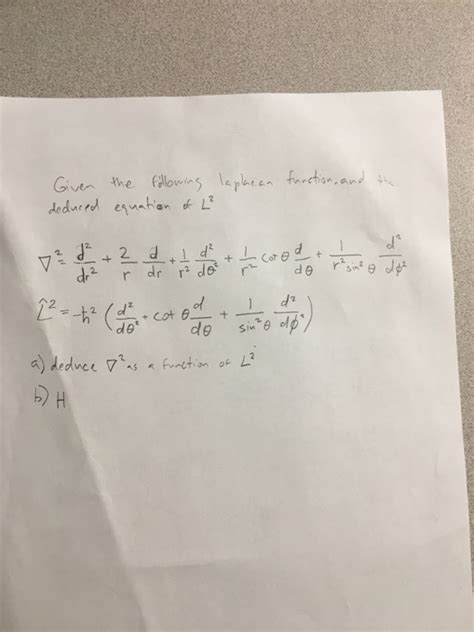 Given the following laplacian function, and the
deduced equation of L²
∇² = d²/dr² + 2/r d/dr + 1/r² d²/dθ² + 1/r² cot θ d/dθ + 1/(r² sin² θ) d²/dϕ²
L̂² = -ħ² (d²/dθ² + cot θ d/dθ + 1/(sin² θ) d²/dϕ²)
a) deduce ∇² as a function of L²
b) H